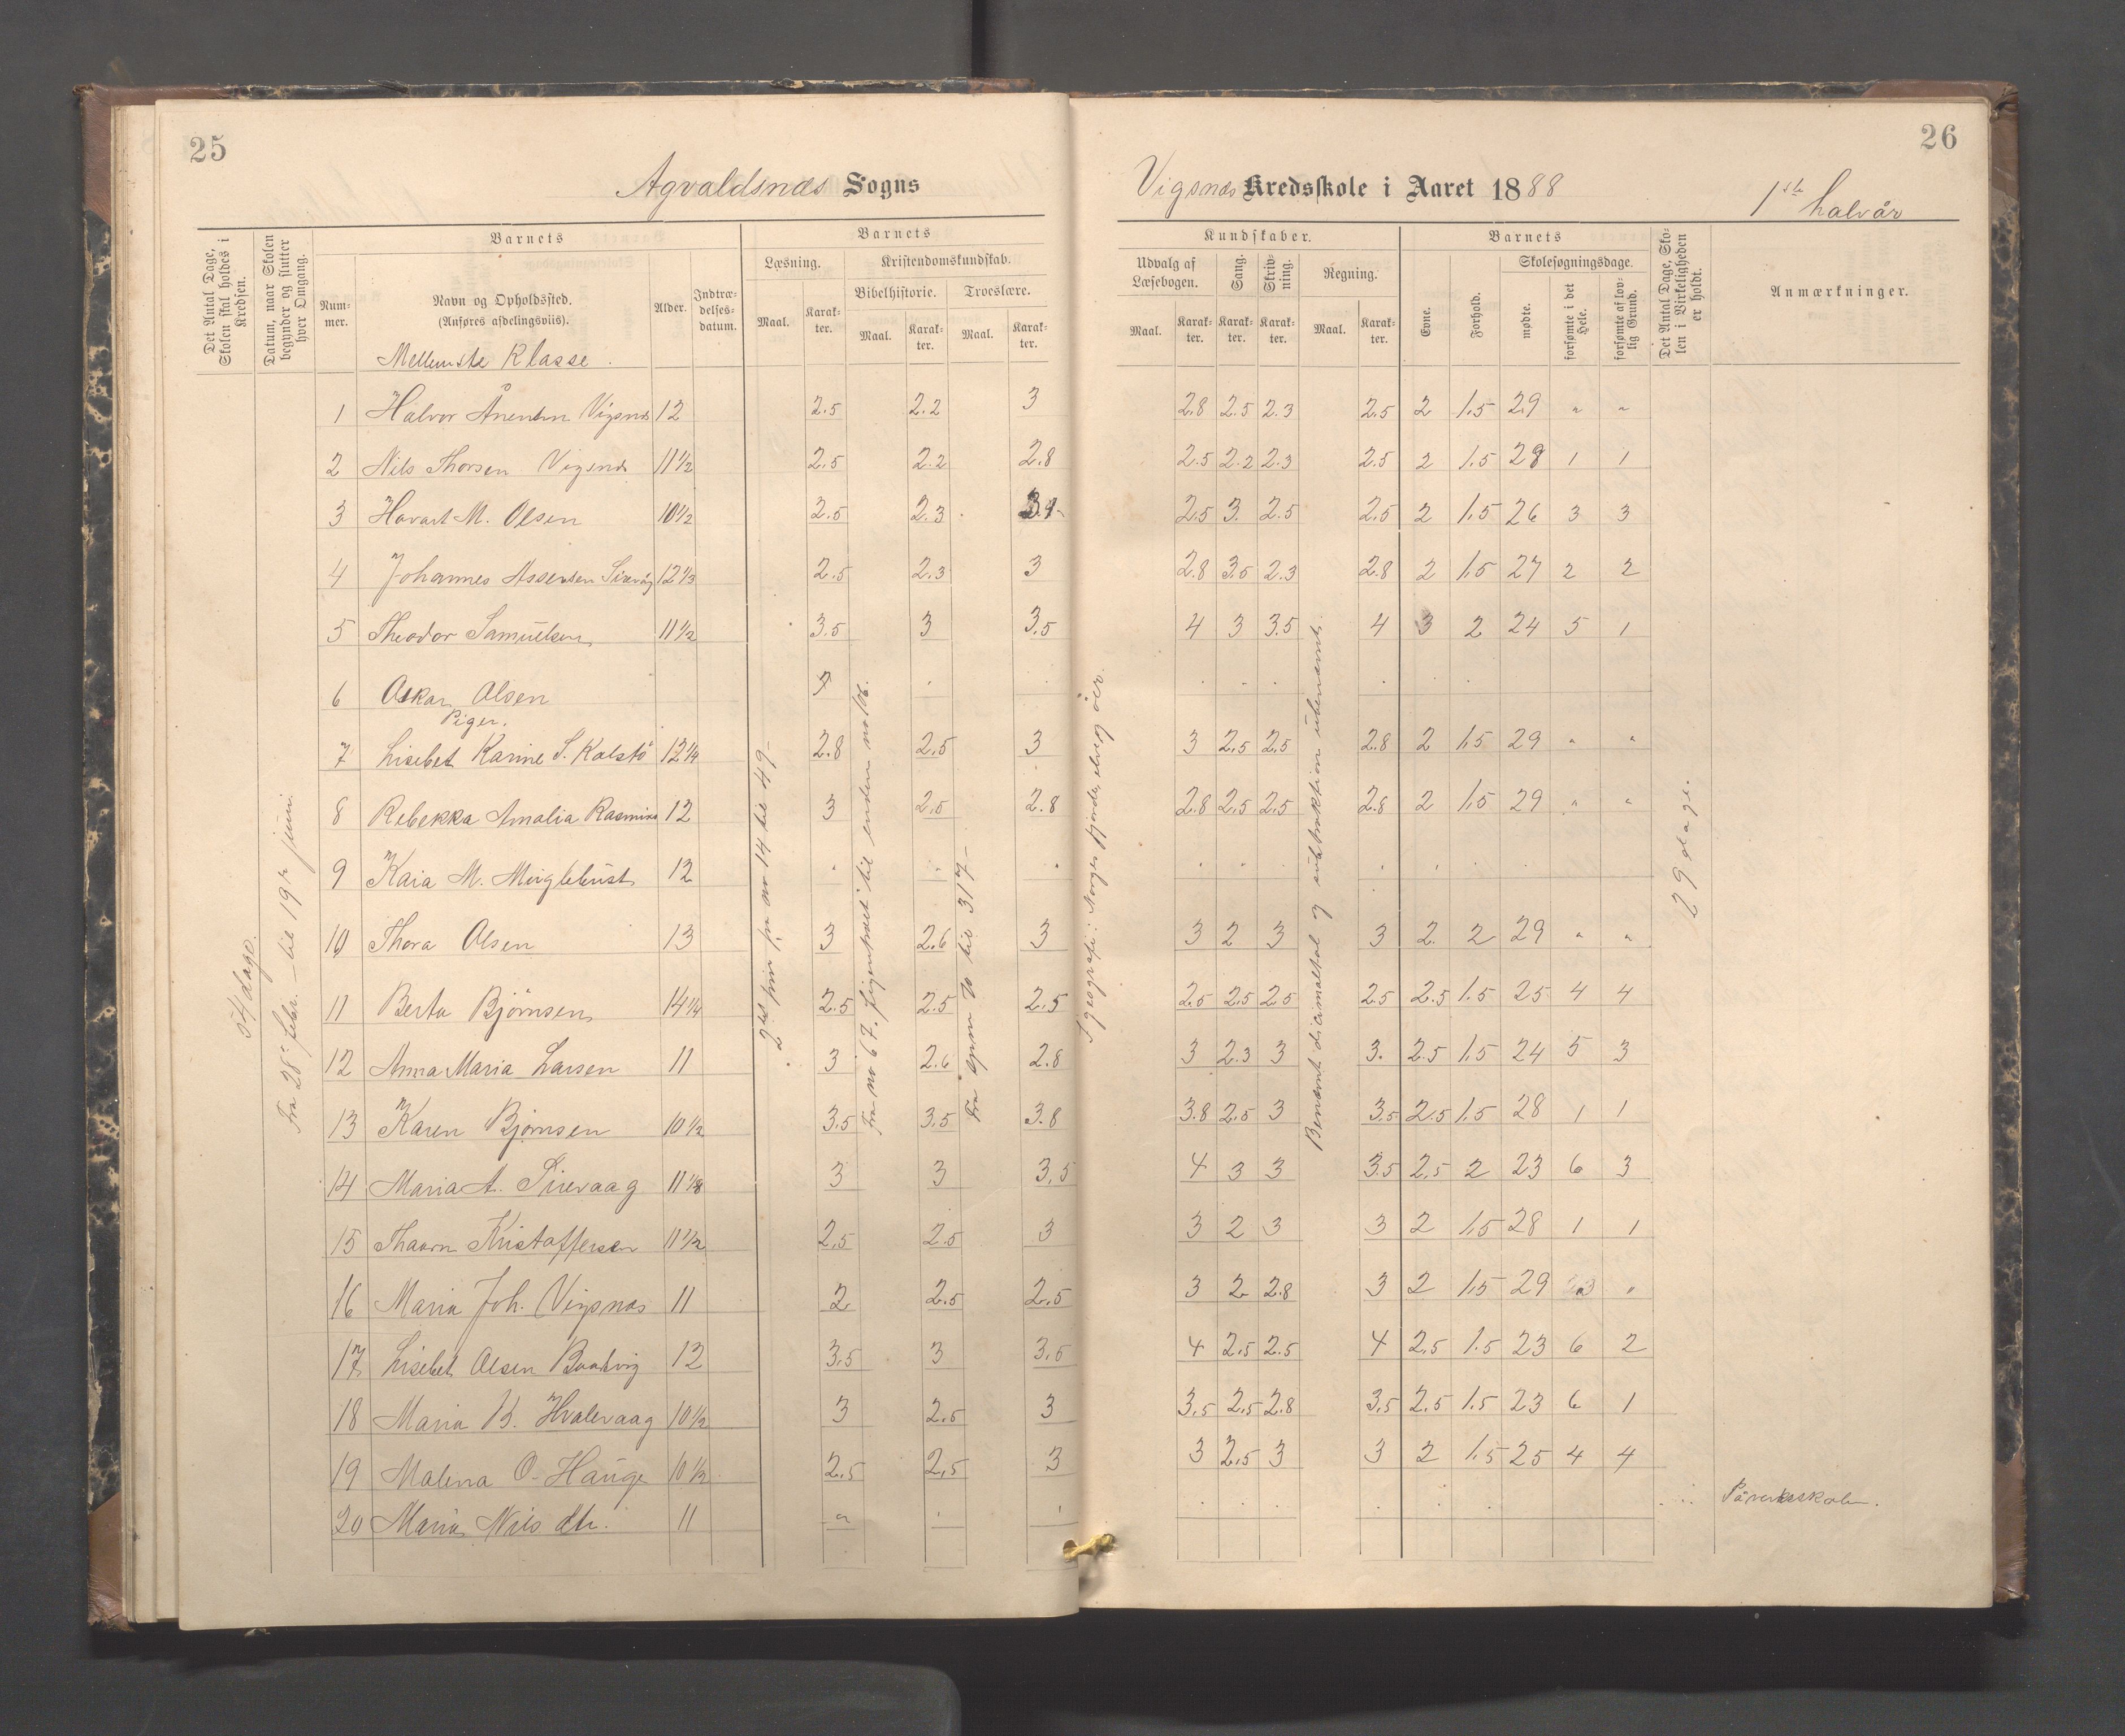 25
26
Agvaldsnæs Sogns
Vigsnæs Kredsskole i Aaret 1888
1ste halvår
Det Antal Dage, Skolen skal holdes i Kredsen.
Datum, naar Skolen begynder og slutter hver Omgang.
Barnets
Nummer.
Navn og Opholdssted. (Anføres afdelingsviis).
Alder.
Indtrædelsesdatum.
Barnets
Læsning.
Maal.
Karakter.
Kristendomskundskab.
Bibelhistorie.
Maal.
Karakter.
Troeslære.
Maal.
Karakter.
Kundskaber.
Udvalg af Læsebogen.
Maal.
Karakter.
Sang.
Karakter.
Skrivning.
Karakter.
Regning.
Maal.
Karakter.
Barnets
Evne.
Forhold.
Skolesøgningsdage.
mødte.
forsømte i det Hele.
forsømte af lovlig Grund.
Det Antal Dage, Skolen i Virkeligheden er holdt.
Anmærkninger.
Mellemste Klasse.
1 Halvor Vigsnæs 12 2.5 2.2 3 2.8 2.5 2.3 2.5 2 1.5 29 " "
2 Nils Thorsen Vigsnæs 11 1/2 2.5 2.2 2.8 2.5 2.2 2.3 2.5 2 1.5 28 1 1
3 Havart M. Olsen 10 1/2 2.5 2.3 2.5 3. 2.5 2.5 2 1.5 26 3 3
4 Johannes Assersen 12 1/3 2.5 2.3 3 2.8 3.5 2.3 2.8 2 1.5 27 2 2
5 Theodor Samuelsen 11 1/2 3.5 3 3.5 4 3 3.5 4 3 2 24 5 1
6 Oskar Olsen
Piger.
7 Lisebet Karine S. Kalstö 12 1/4 2.8 2.5 3 3 2.5 2.5 2.8 2 1.5 29 " "
8 Rebekka Amalia 12 3 2.5 2.8 2.8 2.5 2.5 2.8 2 1.5 29 " "
9 Kaia M. 12
10 Thora Olsen 13 3 2.6 3 3 2 3 3 2. 2 29 " "
11 Berta Björnsen 14 1/4 2.5 2.5 2.5 2.5 2.5 2.5 2.5 2.5 1.5 25 4 4
12 Anna Maria Larsen 11 3 2.6 2.8 3 2.3 3 3. 2.5 1.5 24 5 3
13 Karen Björnsen 10 1/2 3.5 3.5 3.8 3.8 2.5 3 3.5 2.5 1.5 28 1 1
14 Maria A. Sirevaag 11 1/8 3 3 3.5 4 3 3 3.5 2.5 2 23 6 3
15 Kristoffersen 11 1/2 2.5 2.5 3 3 2 3 3 2 1.5 28 1 1
16 Maria Joh. Vigsnæs 11 2 2.5 2.5 3 2 2.8 3 2 1.5 29 "
17 Lisebet Olsen 12 3.5 3 3.5 4 2.5 2.5 4 2.5 1.5 23 6 2
18 Maria K. Hvalevaag 10 1/2 3 2.5 3 3.5 2.5 2.8 3.5 2.5 1.5 23 6 1
19 Malena O. Hauge 10 1/2 2.5 2.5 3 3 2.5 3 3 2 1.5 25 4 4
20 Maria Nilsdtr. 11 "
54 dage.
Fra 28de febr. til 19de juni.
fra no 14 til 49
Fra no 67. til enden no 106.
Fra til 317
I geografi: Norges fjorde, elve og öer.
Benævnt decimaltal og subtraktion ubenævnt.
29 dage.